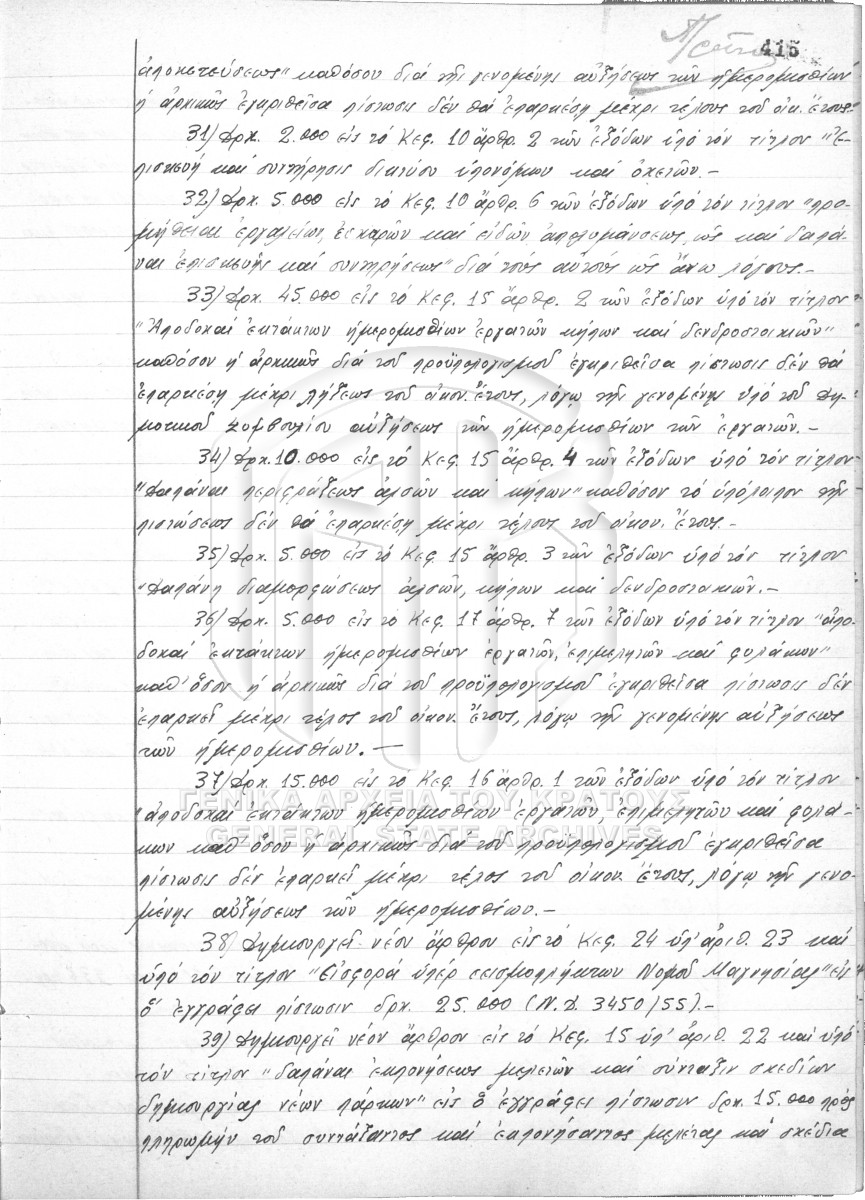 415
ἀποχετεύσεως" καθόσον διά τῆς γενομένης αὐξήσεως τῶν ἡμερομισθίων
ἡ ἀρχικῶς ἐγκριθεῖσα πίστωσις δέν θά ἐπαρκέσῃ μέχρι τέλους τοῦ οἰκ. ἔτους.-
31) Δρχ. 2.000 εἰς τό Κεφ. 10 ἄρθρ. 2 τῶν ἐξόδων ὑπό τόν τίτλον "Ἐ-
πισκευή καί συντήρησις δικτύου ὑπονόμων καί ὀχετῶν.-
32) Δρχ. 5.000 εἰς τό Κεφ. 10 ἄρθρ. 6 τῶν ἐξόδων ὑπό τόν τίτλον "προ-
μήθειαι ἐργαλείων, ἐσχαρῶν καί εἰδῶν ἀπολυμάνσεως, ὡς καί δαπά-
ναι ἐπισκευῆς καί συντηρήσεως" διά τούς αὐτούς ὡς ἄνω λόγους.-
33) Δρχ. 45.000 εἰς τό Κεφ. 15 ἄρθρ. 2 τῶν ἐξόδων ὑπό τόν τίτλον
"Ἀποδοχαί ἐκτάκτων ἡμερομισθίων ἐργατῶν κήπων καί δενδροστοιχιῶν"
καθόσον ἡ ἀρχικῶς διά τοῦ προϋπολογισμοῦ ἐγκριθεῖσα πίστωσις δέν θά
ἐπαρκέσῃ μέχρι λήξεως τοῦ οἰκον. ἔτους, λόγῳ τῆς γενομένης ὑπό τοῦ Δη-
μοτικοῦ Συμβουλίου αὐξήσεως τῶν ἡμερομισθίων τῶν ἐργατῶν.-
34) Δρχ. 10.000 εἰς τό Κεφ. 15 ἄρθρ. 4 τῶν ἐξόδων ὑπό τόν τίτλον
"Δαπάναι περιφράξεως ἀλσῶν καί κήπων" καθόσον τό ὑπόλοιπον τῆς
πιστώσεως δέν θά ἐπαρκέσῃ μέχρι τέλους τοῦ οἰκον. ἔτους.-
35) Δρχ. 5.000 εἰς τό Κεφ. 15 ἄρθρ. 3 τῶν ἐξόδων ὑπό τόν τίτλον
"Δαπάνη διαμορφώσεως ἀλσῶν, κήπων καί δενδροστοιχιῶν.-
36) Δρχ. 5.000 εἰς τό Κεφ. 17 ἄρθρ. 7 τῶν ἐξόδων ὑπό τόν τίτλον "ἀπο-
δοχαί ἐκτάκτων ἡμερομισθίων ἐργατῶν, ἐπιμελητῶν καί φυλάκων"
καθ' ὅσον ἡ ἀρχικῶς διά τοῦ προϋπολογισμοῦ ἐγκριθεῖσα πίστωσις δέν
ἐπαρκεῖ μέχρι τέλος τοῦ οἰκον. ἔτους, λόγῳ τῆς γενομένης αὐξήσεως
τῶν ἡμερομισθίων.-
37) Δρχ. 15.000 εἰς τό Κεφ. 16 ἄρθρ. 1 τῶν ἐξόδων ὑπό τόν τίτλον
ΓΕΝΙΚΑ ΑΡΧΕΙΑ ΤΟΥ ΚΡΑΤΟΥΣ
"ἀποδοχαί ἐκτάκτων ἡμερομισθίων ἐργατῶν, ἐπιμελητῶν καί φυλά-
GENERAL STATE ARCHIVES
κων καθ' ὅσον ἡ ἀρχικῶς διά τοῦ προϋπολογισμοῦ ἐγκριθεῖσα
πίστωσις δέν ἐπαρκεῖ μέχρι τέλος τοῦ οἰκον. ἔτους, λόγῳ τῆς γενο-
μένης αὐξήσεως τῶν ἡμερομισθίων.-
38) Δημιουργεῖ νέον ἄρθρον εἰς τό Κεφ. 24 ὑπ' ἀριθ. 23 καί
ὑπό τόν τίτλον "Εἰσφορά ὑπέρ σεισμοπλήκτων Νομοῦ Μαγνησίας" εἰς
ὅ ἐγγράφει πίστωσιν δρχ. 25.000 (Ν.Δ. 3450/55).-
39) Δημιουργεῖ νέον ἄρθρον εἰς τό Κεφ. 15 ὑπ' ἀριθ. 22 καί ὑπό
τόν τίτλον "δαπάναι ἐκπονήσεως μελετῶν καί σύνταξιν σχεδίων
δημιουργίας νέων πάρκων" εἰς ὅ ἐγγράφει πίστωσιν δρχ. 15.000 πρός
πληρωμήν τοῦ συντάξαντος καί ἐκπονήσαντος μελέτας καί σχέδια